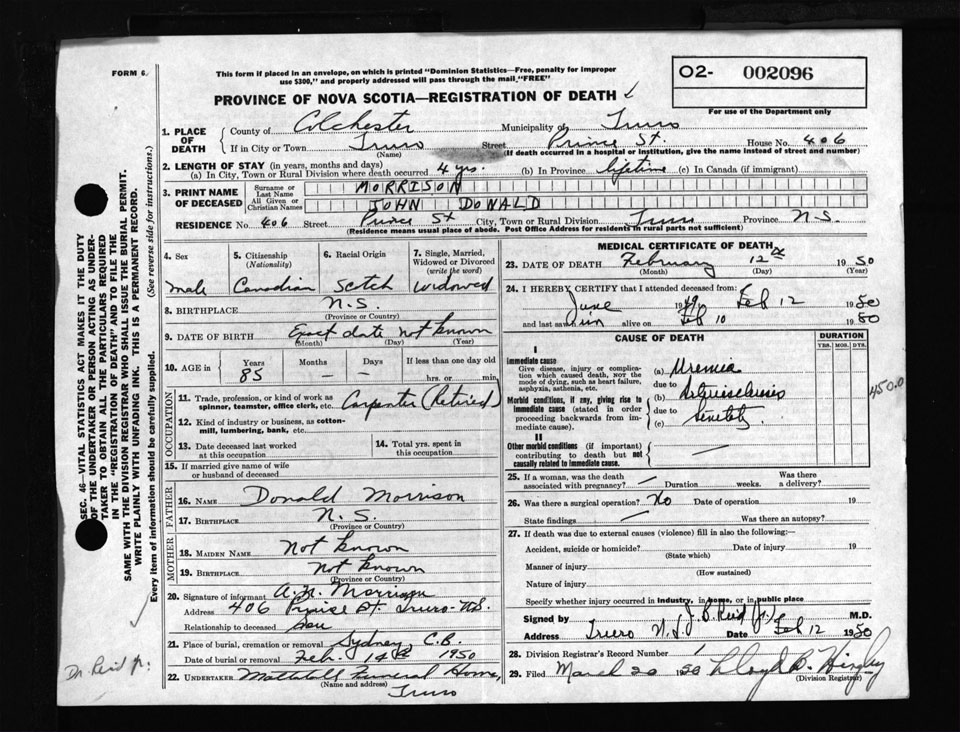 FORM 6
This form if placed in an envelope, on which is printed "Dominion Statistics—Free, penalty for improper
use $300," and properly addressed will pass through the mail "FREE"
O2- 002096
For use of the Department only
PROVINCE OF NOVA SCOTIA—REGISTRATION OF DEATH
1. PLACE OF DEATH
County of Colchester Municipality of Truro
If in City or Town Truro Street Prince St. House No. 406
(Name) (If death occurred in a hospital or institution, give the name instead of street and number)
2. LENGTH OF STAY (in years, months and days)
(a) In City, Town or Rural Division where death occurred 4 yrs. (b) In Province lifetime (c) In Canada (if immigrant)
3. PRINT NAME OF DECEASED
Surname or Last Name MORRISON
All Given or Christian Names JOHN DONALD
RESIDENCE No. 406 Street Prince St City, Town or Rural Division Truro Province N.S.
(Residence means usual place of abode. Post Office Address for residents in rural parts not sufficient)
4. Sex
male
5. Citizenship
(Nationality)
Canadian
6. Racial Origin
Scotch
7. Single, Married,
Widowed or Divorced
(write the word)
widowed
8. BIRTHPLACE N.S.
(Province or Country)
9. DATE OF BIRTH Exact date not known
(Month) (Day) (Year)
10. AGE in
Years Months Days If less than one day old
85 – – hrs. or min.
OCCUPATION
11. Trade, profession, or kind of work as
spinner, teamster, office clerk, etc. Carpenter (Retired)
12. Kind of industry or business, as cotton-
mill, lumbering, bank, etc.
13. Date deceased last worked
at this occupation
14. Total yrs. spent in
this occupation
15. If married give name of wife
or husband of deceased
FATHER
16. NAME Donald Morrison
17. BIRTHPLACE N.S.
(Province or Country)
MOTHER
18. MAIDEN NAME Not known
19. BIRTHPLACE Not known
(Province or Country)
20. Signature of informant Morrison
Address 406 Prince St. Truro N.S.
Relationship to deceased Son
21. Place of burial, cremation or removal Sydney C.B.
Date of burial or removal Feb. 14th 1950
22. UNDERTAKER Funeral Home,
(Name and address) Truro
MEDICAL CERTIFICATE OF DEATH
23. DATE OF DEATH February 12th 1950
(Month) (Day) (Year)
24. I HEREBY CERTIFY that I attended deceased from:
June 1949 to Feb 12 1950
and last saw him alive on Feb 10 1950
CAUSE OF DEATH
DURATION
YRS. MOS. DYS.
I
Immediate cause
Give disease, injury or complica-
tion which caused death, NOT the
mode of dying, such as heart failure,
asphyxia, asthenia, etc.
(a) Uremia
due to
Morbid conditions, if any, giving rise to
immediate cause (stated in order
proceeding backwards from im-
mediate cause).
(b) Arteriosclerosis
due to
(c) Senility
450.0
II
Other morbid conditions (if important)
contributing to death but not
causally related to immediate cause.
25. If a woman, was the death
associated with pregnancy? Duration weeks. Was there
a delivery?
26. Was there a surgical operation? No Date of operation 19
State findings Was there an autopsy?
27. If death was due to external causes (violence) fill in also the following:—
Accident, suicide or homicide? Date of injury 19
(State which)
Manner of injury
(How sustained)
Nature of injury
Specify whether injury occurred in industry, in home, or in public place
Signed by J. B. Reid (Jr.) M.D.
Address Truro N.S. Date Feb 12 1950
28. Division Registrar's Record Number 1
29. Filed March 20 1950 Lloyd
(Division Registrar)
SEC. 46—VITAL STATISTICS ACT MAKES IT THE DUTY
OF THE UNDERTAKER OR PERSON ACTING AS UNDER-
TAKER TO OBTAIN ALL THE PARTICULARS REQUIRED
IN THE "REGISTRATION OF DEATH" AND TO FILE THE
SAME WITH THE DIVISION REGISTRAR WHO SHALL ISSUE THE BURIAL PERMIT.
WRITE PLAINLY WITH UNFADING INK. THIS IS A PERMANENT RECORD.
Every item of information should be carefully supplied. (See reverse side for instructions.)
Dr. Reid Jr.